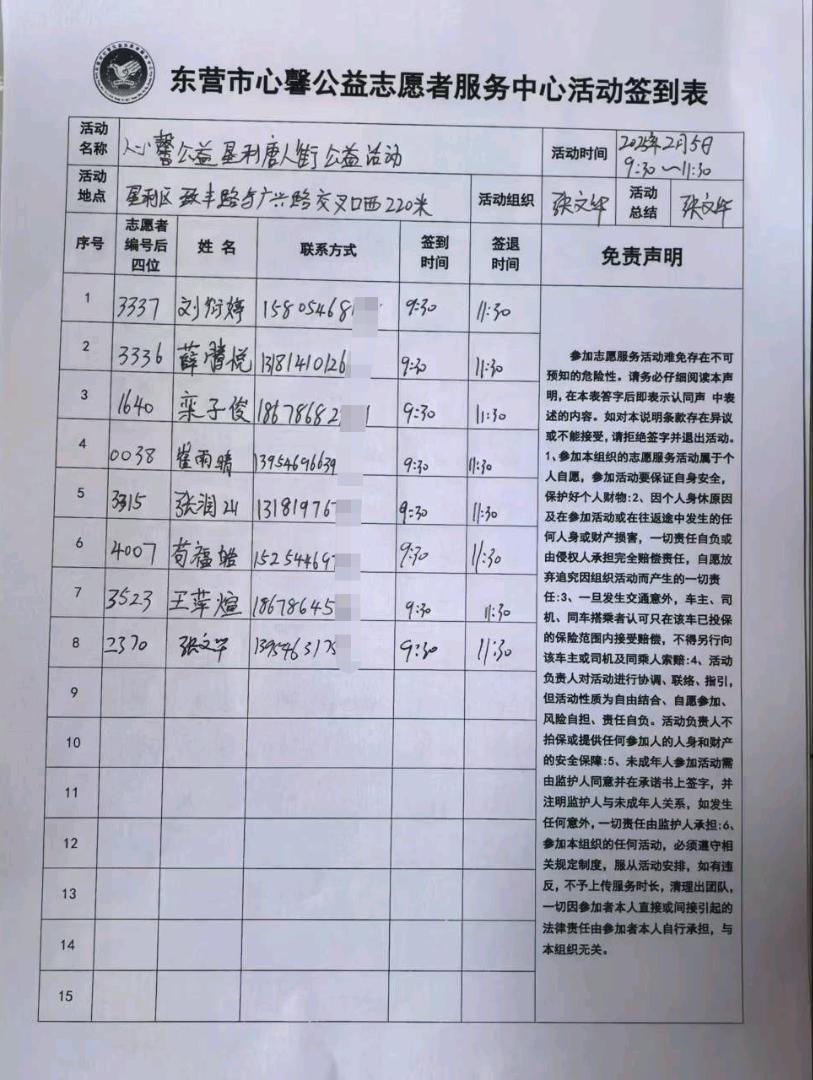 东营市心馨公益志愿者服务中心活动签到表
活动名称 心馨公益垦利唐人街公益活动 活动时间 2025年2月5日 9:30～11:30
活动地点 垦利区致丰路与广兴路交叉口西220米 活动组织 张文华 活动总结 张文华
序号 志愿者编号后四位 姓名 联系方式 签到时间 签退时间 免责声明
1 3337 刘衍婷 15805468 9:30 11:30
2 3336 薛腾悦 13181410126 9:30 11:30
3 1640 栾子俊 18678682 1 9:30 11:30
4 0038 崔雨晴 13954696639 9:30 11:30
5 3315 张润山 13181976 9:30 11:30
6 4007 苟福 15254469 9:30 11:30
7 3523 王苹煊 18678645 9:30 11:30
8 2370 张文华 139546317 9:30 11:30
9
10
11
12
13
14
15
参加志愿服务活动难免存在不可
预知的危险性。请务必仔细阅读本声
明,在本表签字后即表示认同声 中表
述的内容。如对本说明条款存在异议
或不能接受,请拒绝签字并退出活动。
1、参加本组织的志愿服务活动属于个
人自愿，参加活动要保证自身安全，
保护好个人财物:2、因个人身休原因
及在参加活动或在往返途中发生的任
何人身或财产损害，一切责任自负或
由侵权人承担完全赔偿责任，自愿放
弃追究因组织活动而产生的一切责
任:3、一旦发生交通意外，车主、司
机、同车搭乘者认可只在该车已投保
的保险范围内接受赔偿，不得另行向
该车主或司机及同乘人索赔:4、活动
负责人对活动进行协调、联络、指引，
但活动性质为自由结合、自愿参加、
风险自担、责任自负。活动负责人不
拍保或提供任何参加人的人身和财产
的安全保障:5、未成年人参加活动需
由监护人同意并在承诺书上签字，并
注明监护人与未成年人关系，如发生
任何意外，一切责任由监护人承担:6、
参加本组织的任何活动，必须遵守相
关规定制度，服从活动安排，如有违
反，不予上传服务时长，清理出团队，
一切因参加者本人直接或间接引起的
法律责任由参加者本人自行承担，与
本组织无关。